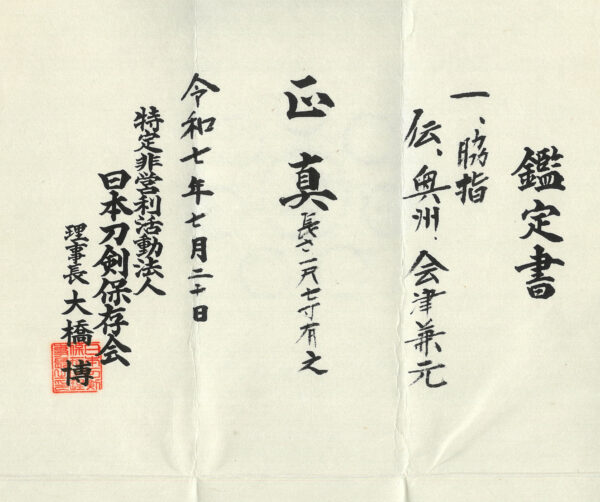 鑑定書
一、脇指
伝、奥州、会津兼元
正真
長さ一尺七寸有之
令和七年七月二十日
特定非営利活動法人
日本刀剣保存会
理事長 大橋博